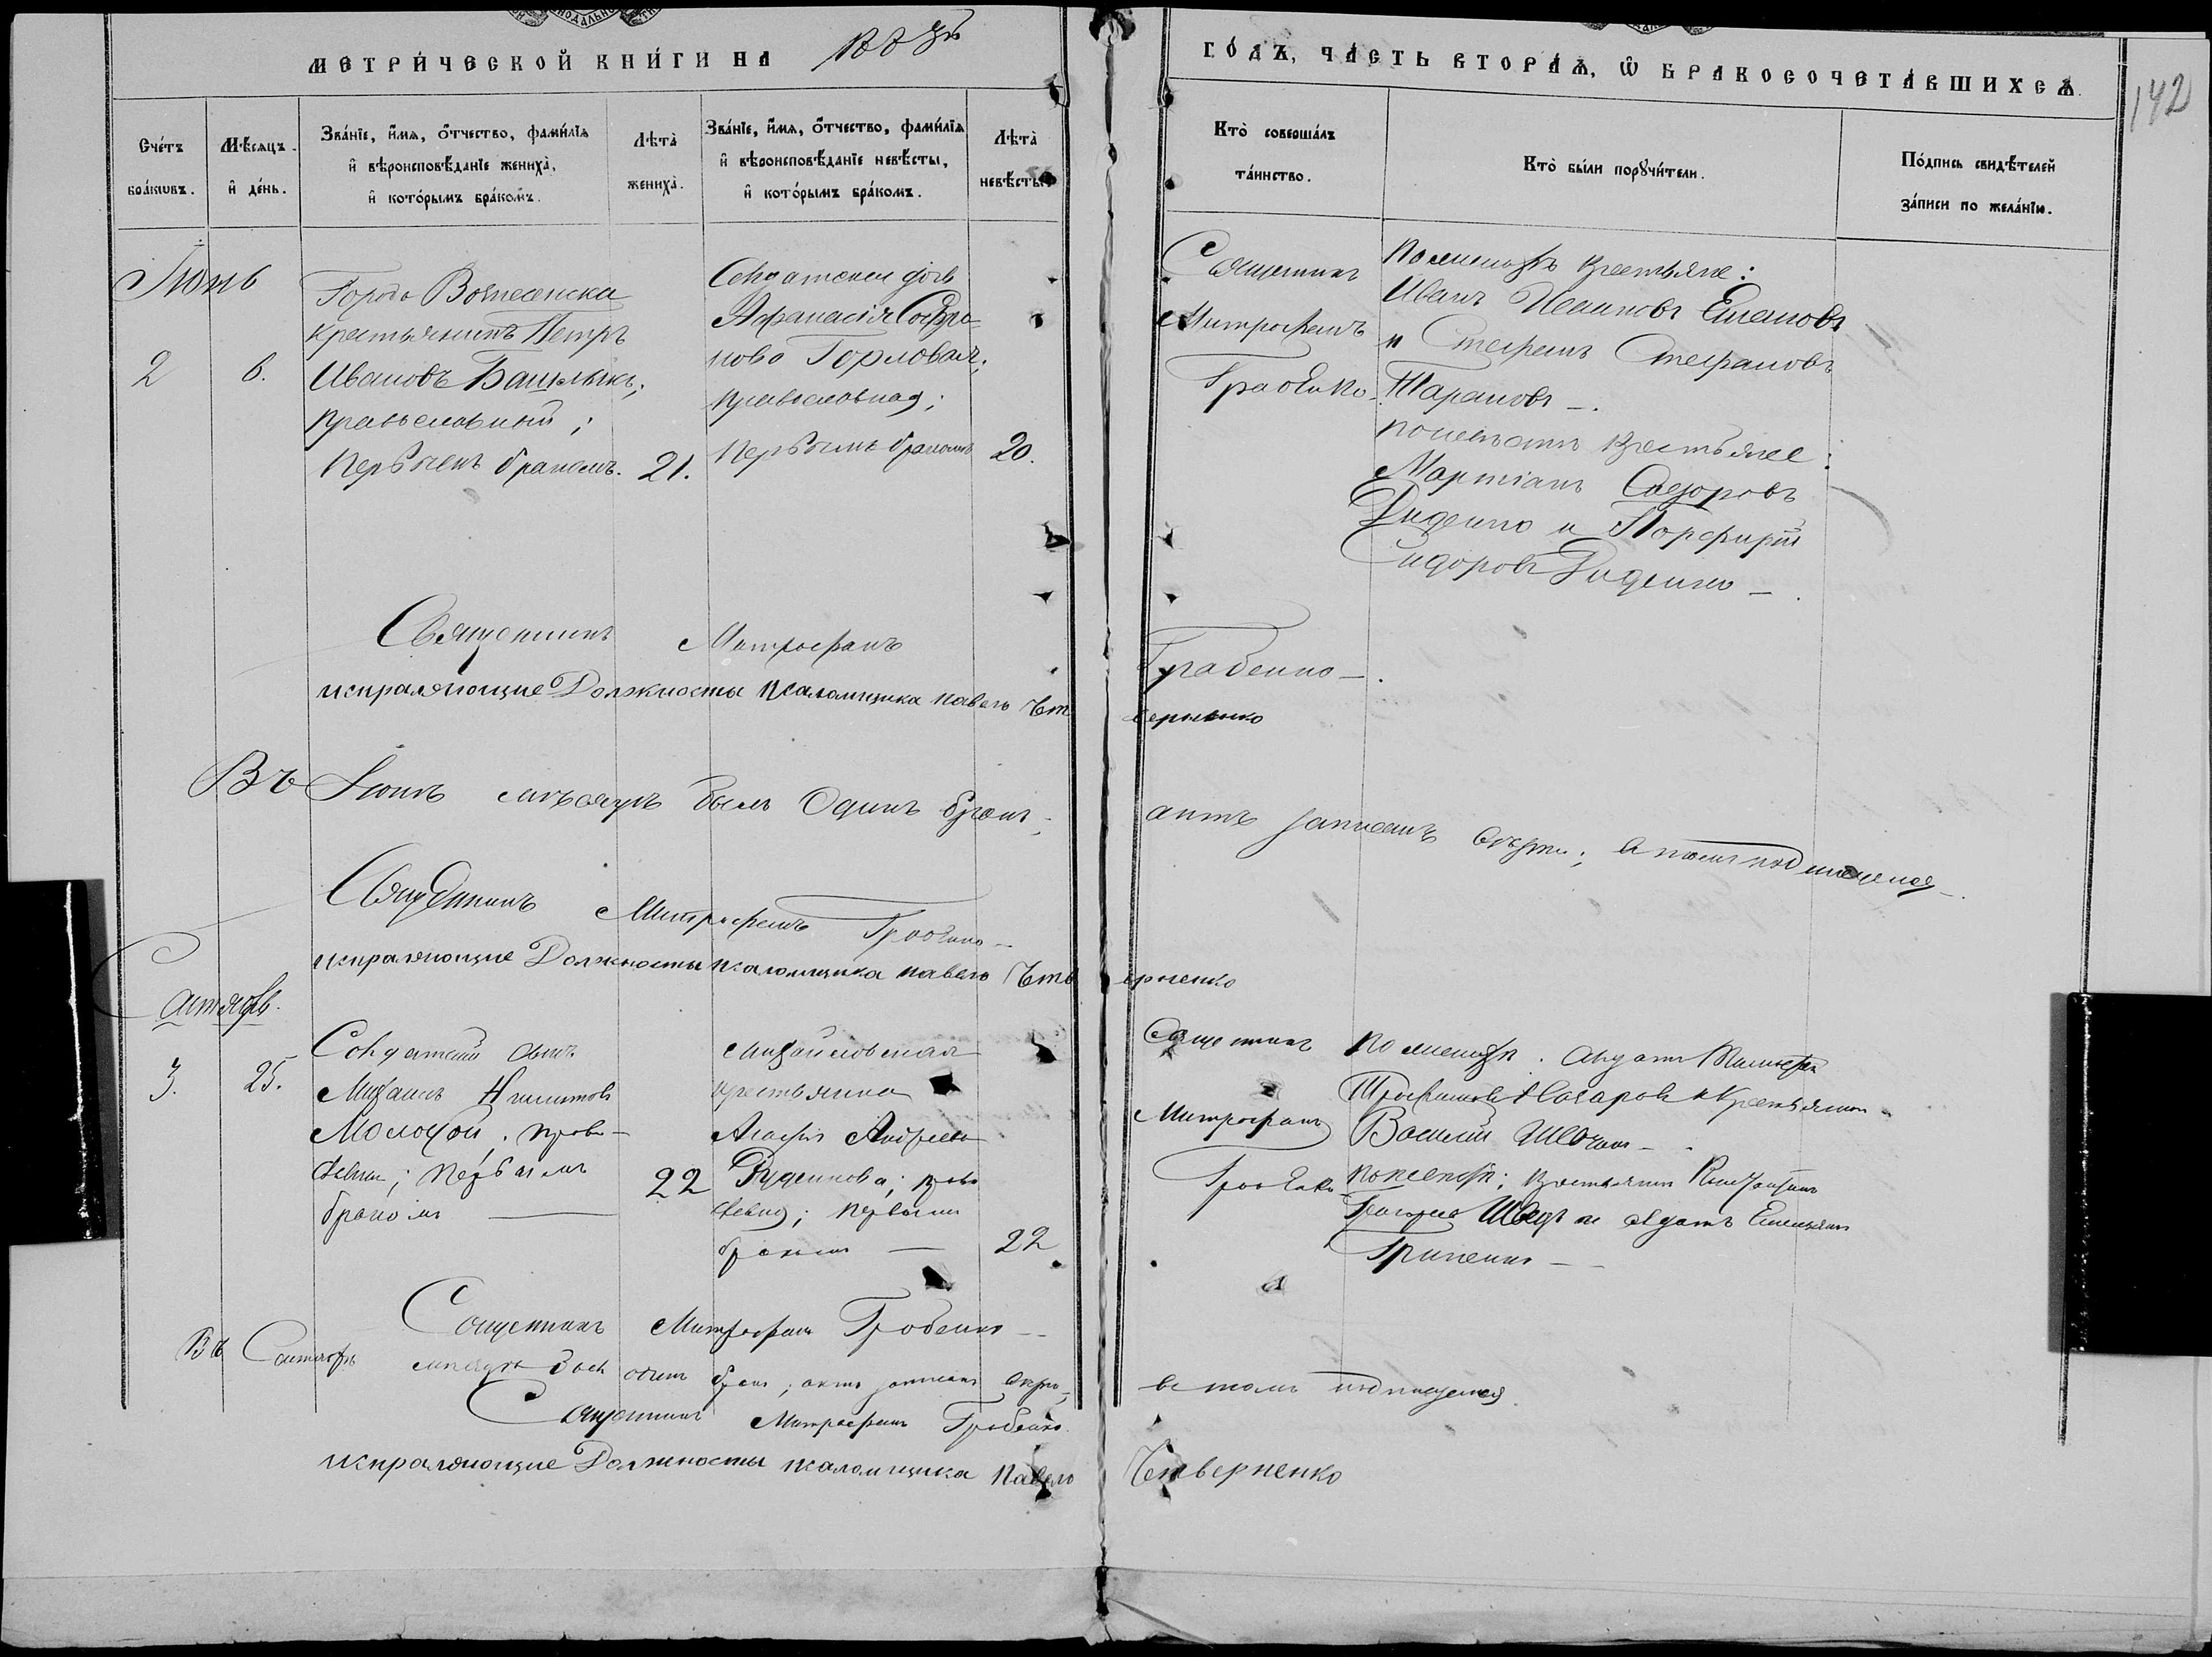 МЕТРИ́ЧЕСКОЙ КНИ́ГИ НА
ГО́ДЪ, ЧА́СТЬ ВТОРА́Ѧ, Ѡ БРАКОСОЧЕТА́ВШИХСѦ.
142
Сче́тъ бра́кѡвъ.
Мѣ́сяцъ и де́нь.
Зва́нїе, и́мѧ, ѻ́тчество, фами́лїѧ и҆ вѣроисповѣ́данїе жениха̀, и҆ кото́рымъ бра́комъ.
Лѣта̀ жениха̀.
Зва́нїе, и́мѧ, ѻ́тчество, фами́лїѧ и҆ вѣроисповѣ́данїе невѣ́сты, и҆ кото́рымъ бра́комъ.
Лѣта̀ невѣ́сты.
Кто̀ соверша́лъ та́инство.
Кто̀ бы́ли порꙋчи́тели.
По́дпись свидѣ́телей за́писи по жела́нїю.
Іюнь
2
6.
Города Вознесенска
крестьянинъ Петръ
Ивановъ Башлыкъ;
православный;
первымъ бракомъ.
21.
Солдатская дочь
Афанасія
Горловая;
православная;
первымъ бракомъ
20.
Священникъ
Митрофанъ
Грабенко
По женихѣ крестьяне:
Иванъ Ивановъ
и Стефанъ Стефановъ
Тарановъ.
по невѣстѣ крестьяне:
Мартіанъ Сидоровъ
Диденко и Порфирій
Сидоровъ Диденко.
Священникъ Митрофанъ Грабенко.
исправляющие Должносты псаломщика павело Четверненко
Въ Іюнѣ мѣсяцѣ былъ Одинъ бракъ; актъ записанъ вѣрно; въ томъ подписуемся.
Священникъ Митрофанъ Грабенко
исправляющие Должносты псаломщика павело Четверненко
Сентябрь.
3.
25.
Солдатскій сынъ
Михаилъ
Молодой, право-
славный; первымъ
бракомъ
22
Михайловская
крестьянка
Агафія Андреева
Руденкова; право
славная; первымъ
бракомъ
22
Священникъ
Митрофанъ
Грабенко
По женихѣ: солдатъ
и крестьянинъ
Василій
по невѣстѣ; крестьянинъ
Шведъ и солдатъ
Гриненко
Священникъ Митрофанъ Грабенко
Въ Сентябрѣ мѣсяцѣ былъ одинъ бракъ; актъ записанъ вѣрно, въ томъ подписуемся.
Священникъ Митрофанъ Грабенко.
исправляющие Должносты псаломщика Павело Четверненко